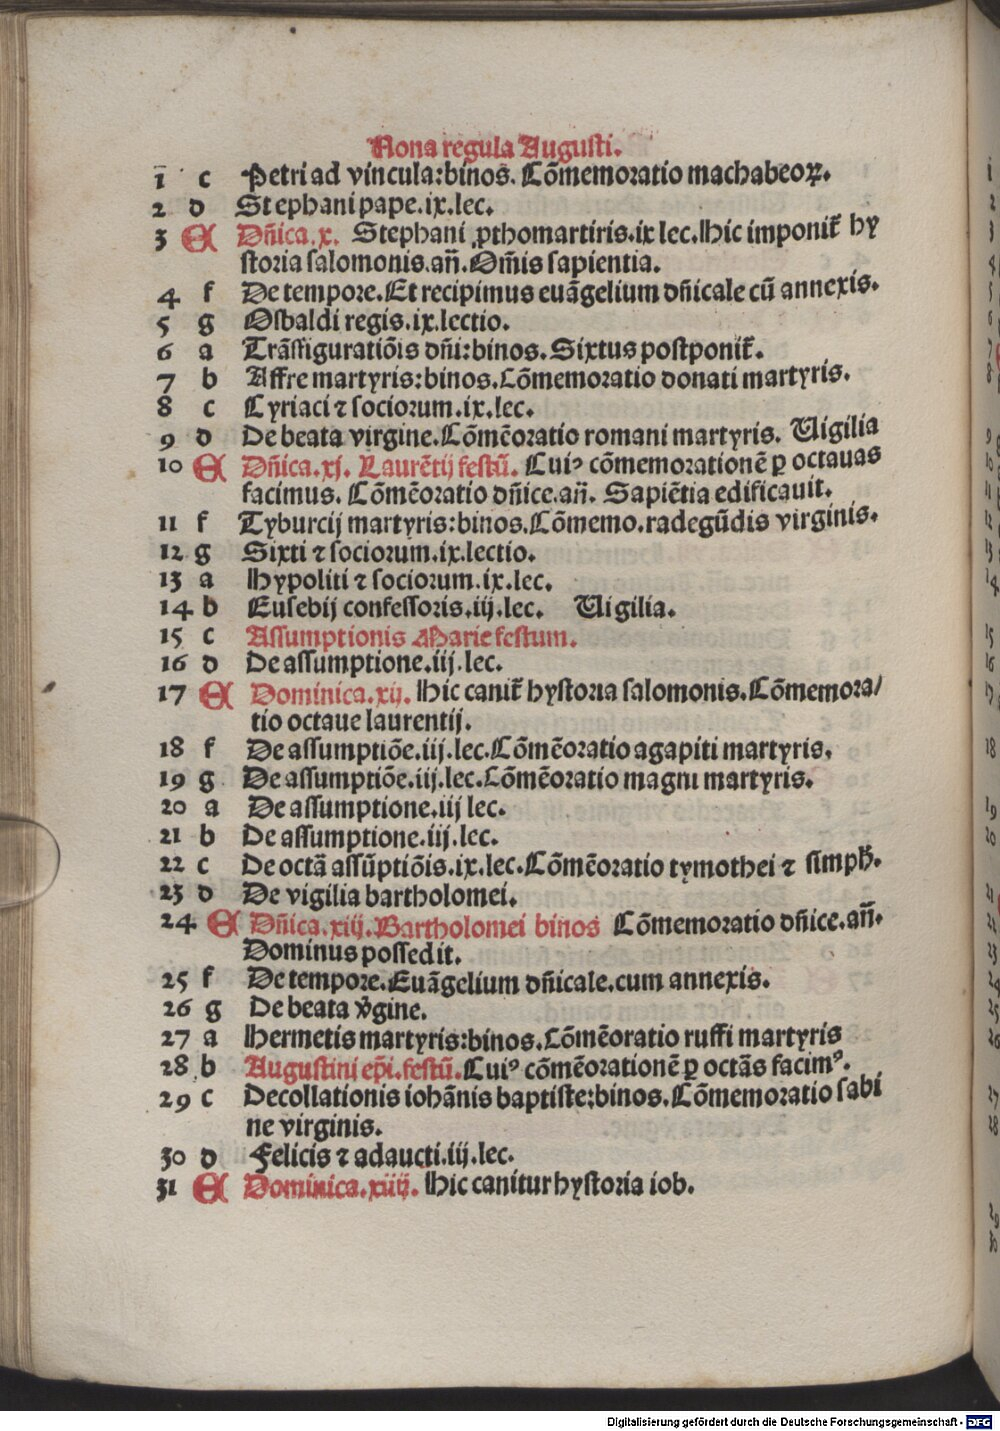 Nona regula Augusti.
1 c Petri ad vincula:binos. Cõmemoratio machabeoꝝ.
2 d Stephani pape.ix.lec.
3 A Dñica.x. Stephani ꝓthomartiris.ix lec.Hic imponit᷑ hy
storia salomonis.añ.Om̃is sapientia.
4 f De tempore.Et recipimus euãgelium dñicale cũ annexis.
5 g Osbaldi regis.ix.lectio.
6 a Trãsfiguratiõis dñi:binos.Sixtus postponit᷑.
7 b Affre martyris:binos.Cõmemoratio donati martyris.
8 c Cyriaci ⁊ sociorum.ix.lec.
9 d De beata virgine.Cõmẽoratio romani martyris. Uigilia
10 A Dñica.xj. Laurẽtij festũ. Cuiꝰ cõmemorationẽ ꝑ octauas
facimus. Cõmẽoratio dñice.añ. Sapiẽtia edificauit.
11 f Tyburcij martyris:binos.Cõmemo.radegũdis virginis.
12 g Sixti ⁊ sociorum.ix.lectio.
13 a Hypoliti ⁊ sociorum.ix.lec.
14 b Eusebij confessoris.iij.lec. Uigilia.
15 c Assumptionis Marie festum.
16 d De assumptione.iij.lec.
17 A Dominica.xij. Hic canit᷑ hystoria salomonis.Cõmemora/
tio octaue laurentij.
18 f De assumptiõe.iij.lec.Cõmẽoratio agapiti martyris.
19 g De assumptiõe.iij.lec.Cõmẽoratio magni martyris.
20 a De assumptione.iij lec.
21 b De assumptione.iij.lec.
22 c De octã assũptiõis.ix.lec.Cõmẽoratio tymothei ⁊ simpħ.
23 d De vigilia bartholomei.
24 A Dñica.xiij.Bartholomei binos Cõmemoratio dñice.añ.
Dominus possedit.
25 f De tempore.Euãgelium dñicale.cum annexis.
26 g De beata v̓gine.
27 a Hermetis martyris:binos.Cõmẽoratio ruffi martyris
28 b Augustini ep̃i.festũ.Cuiꝰ cõmẽorationẽ ꝑ octãs facimꝰ.
29 c Decollationis iohãnis baptiste:binos.Cõmemoratio sabi
ne virginis.
30 d Felicis ⁊ adaucti.iij.lec.
31 A Dominica.xiiij. Hic canitur hystoria iob.
Digitalisierung gefördert durch die Deutsche Forschungsgemeinschaft - DFG